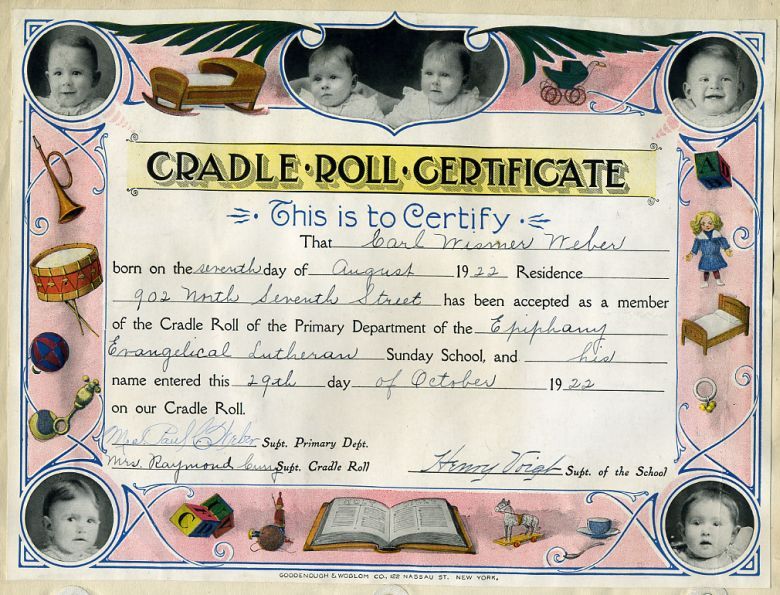 CRADLE · ROLL · CERTIFICATE
This is to Certify
That Carl Wismer Weber
born on the seventh day of August 1922 Residence
902 North Seventh Street has been accepted as a member
of the Cradle Roll of the Primary Department of the Epiphany
Evangelical Lutheran Sunday School, and his
name entered this 29th day of October 1922
on our Cradle Roll.
Mrs. Paul Supt. Primary Dept.
Mrs. Raymond Supt. Cradle Roll
Henry Voigt Supt. of the School
A
C
GOODENOUGH & WOGLOM CO., 122 NASSAU ST. NEW YORK.